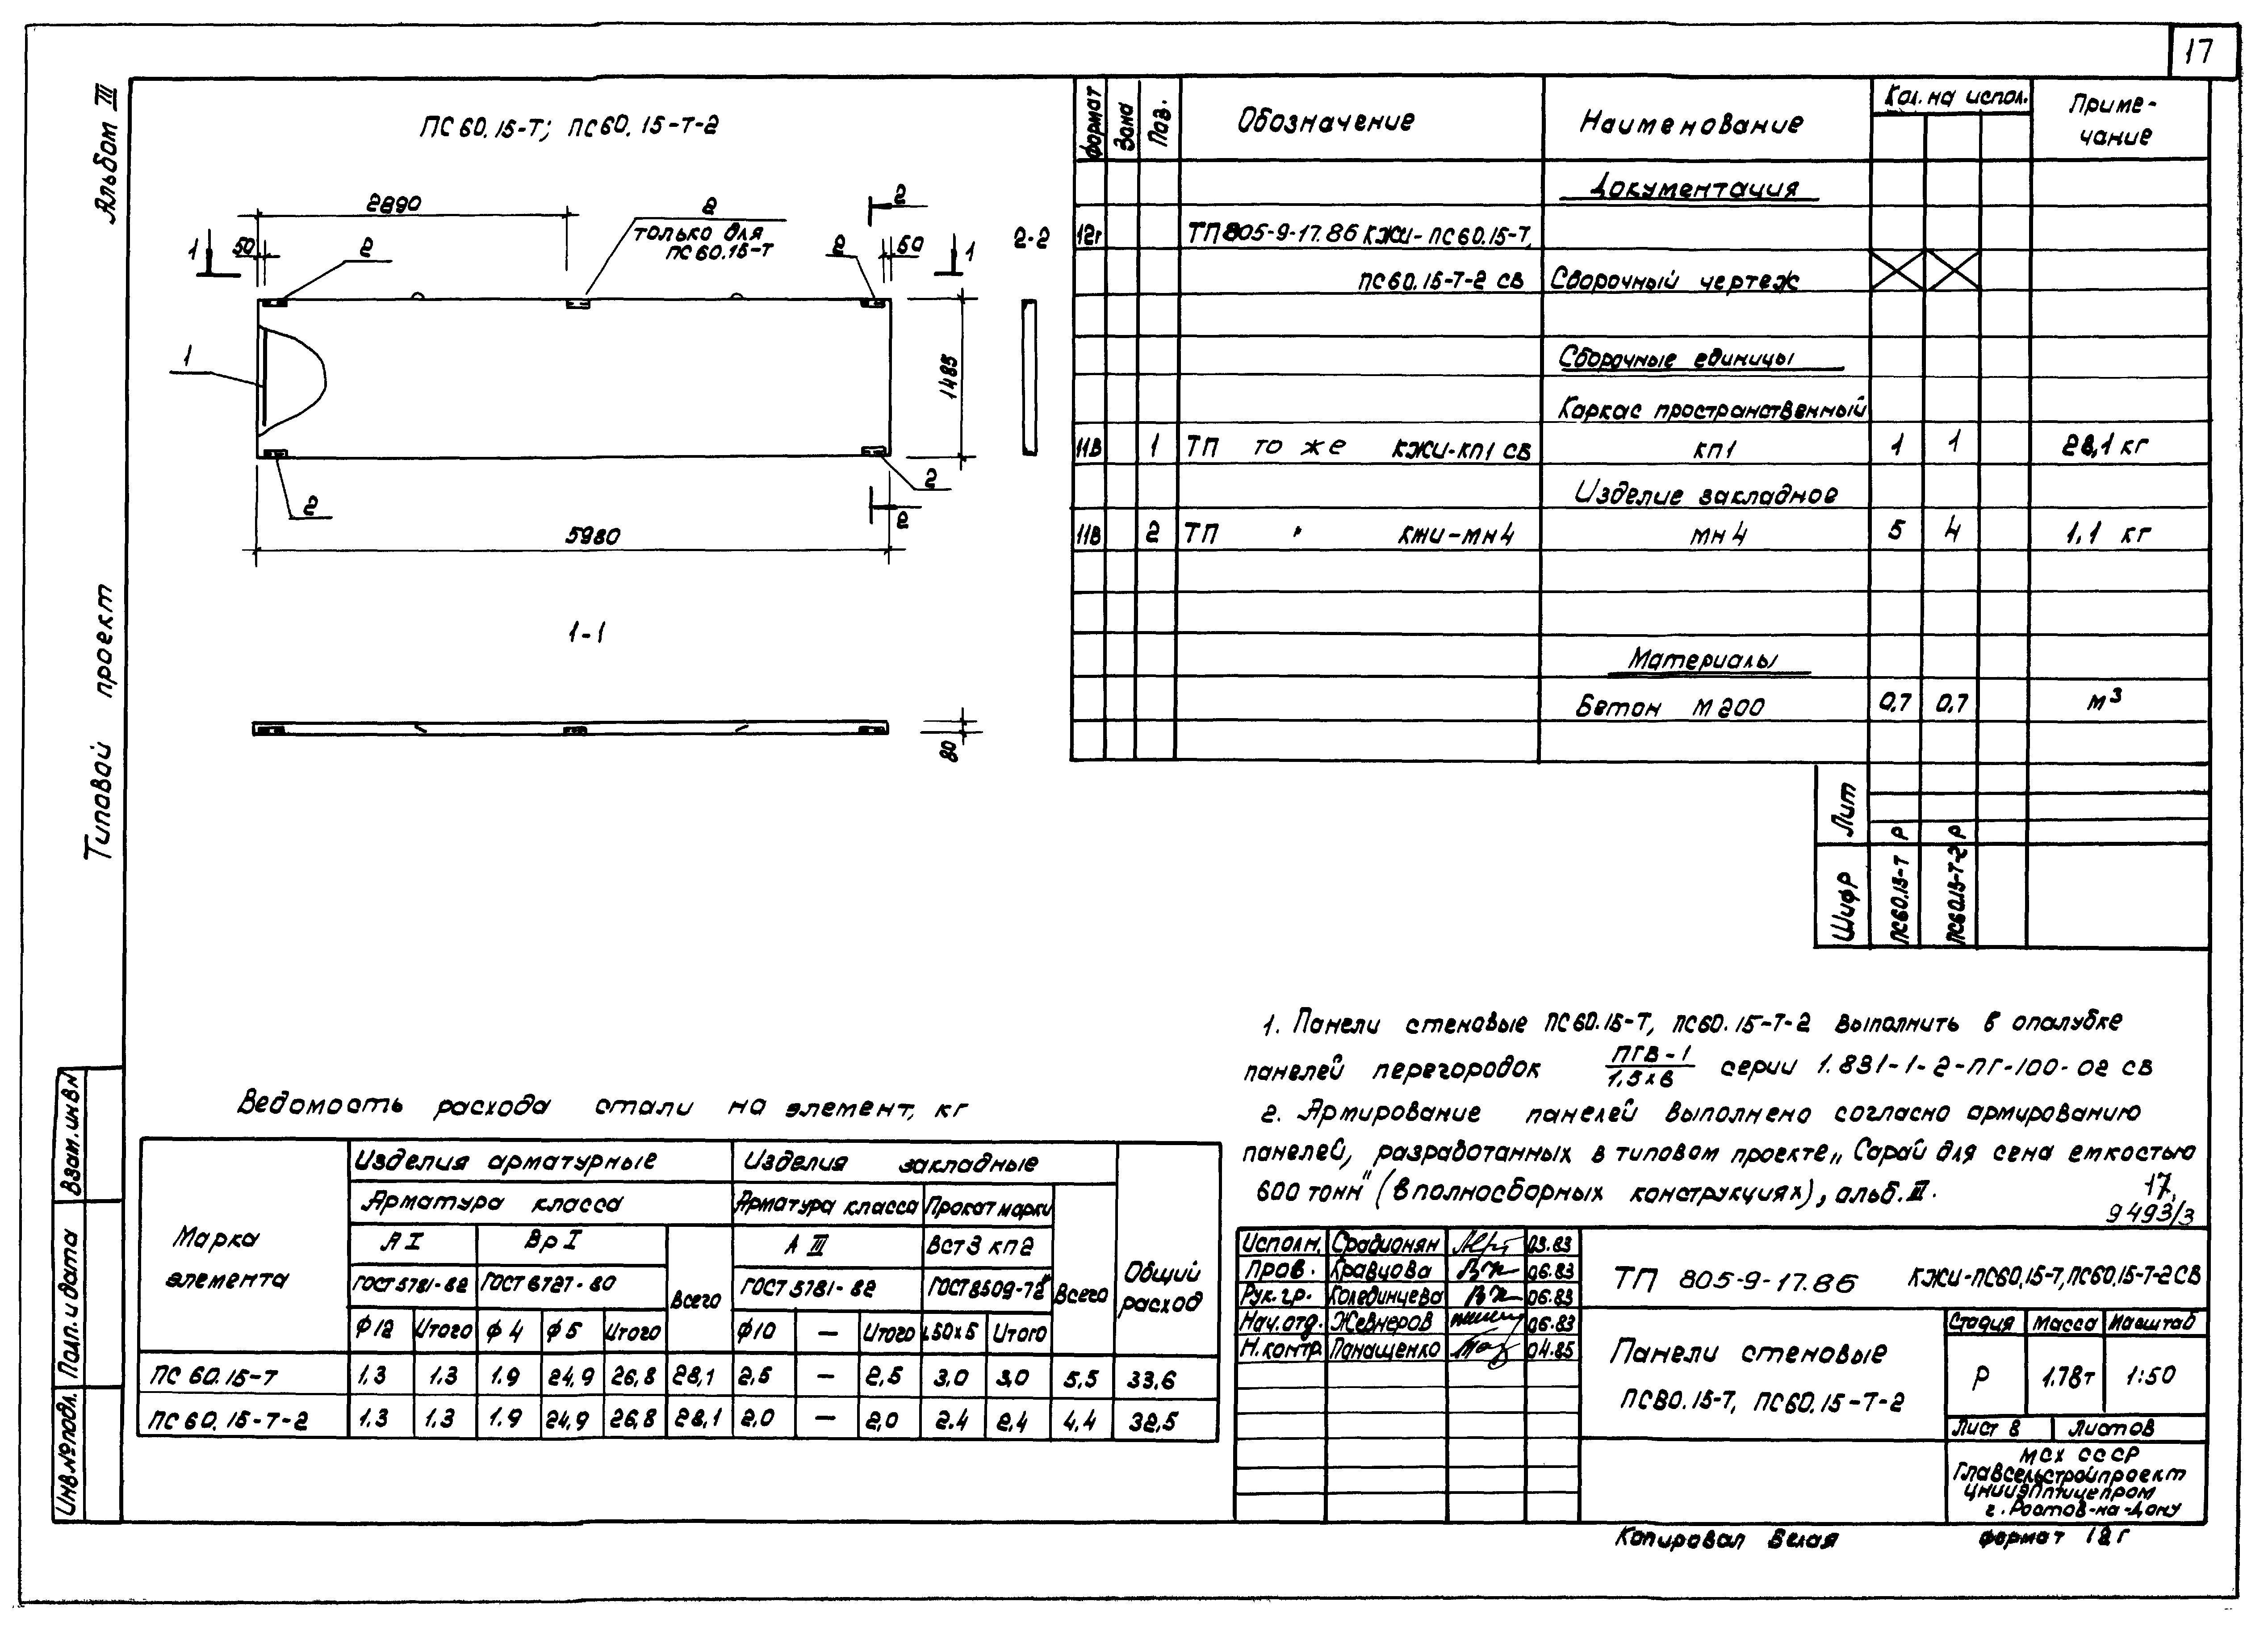 17
Альбом III
Типовай проект
Взам.инвN
Подп. и дата
Инв.№подл.
ПС 60.15-Т; ПС60.15-Т-2
2890
2
только для
ПС60.15-Т
2
1
50
2
2
50
1
2-2
1
1485
2
2
2
5980
1-1
80
Формат Зона Поз. Обозначение Наименование Кол. на испол. Приме-
чание
Документация
12г ТП805-9-17.86 КЖИ-ПС60.15-Т,
ПС60.15-Т-2 СВ Сборочный чертеж
Сборочные единицы
Каркас пространственный
11В 1 ТП то же КЖИ-КП1 СВ КП1 1 1 28,1 кг
Изделие закладное
11В 2 ТП " КЖИ-МН4 МН4 5 4 1,1 кг
Материалы
Бетон М200 0,7 0,7 м³
Лит Р Р
Шифр ПС60.15-Т ПС60.15-Т-2
1. Панели стеновые ПС60.15-Т, ПС60.15-Т-2 выполнить в опалубке
панелей перегородок ПГВ-1/1,5х6 серии 1.831-1-2-ПГ-100-02 СВ
2. Армирование панелей выполнено согласно армированию
панелей, разработанных в типовом проекте „Сарай для сена емкостью
600 тонн" (в полносборных конструкциях), альб. III.
17
9493/3
Ведомость расхода стали на элемент, кг
Марка элемента Изделия арматурные Изделия закладные Общий расход
Арматура класса Всего Арматура класса Прокат марки Всего
А I Вр I А III ВСт3 кп2
ГОСТ 5781-82 ГОСТ 6727-80 ГОСТ 5781-82 ГОСТ 8509-72
ф12 Итого ф4 ф5 Итого ф10 — Итого L50х5 Итого
ПС 60.15-Т 1,3 1,3 1.9 24,9 26,8 28,1 2,5 — 2,5 3,0 3,0 5,5 33,6
ПС 60.15-Т-2 1,3 1,3 1.9 24,9 26,8 28,1 2.0 — 2,0 2.4 2,4 4,4 32,5
Исполн. Срадионян 03.83
Пров. Кравцова 06.83
Рук.гр. Колединцева 06.83
Нач.отд. Жевнеров 06.83
Н.контр. Панащенко 04.85
ТП 805-9-17.86 КЖИ-ПС60,15-Т, ПС60,15-Т-2СВ
Панели стеновые
ПС60.15-Т, ПС60.15-Т-2
Стадия Масса Масштаб
Р 1,78т 1:50
Лист 8 Листов
МСХ СССР
Главсельстройпроект
ЦНИИЭПптицепром
г. Ростов-на-Дону
Копировал Белая формат 12Г